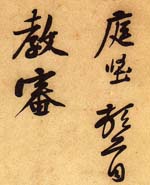 庭堅頓首
教審